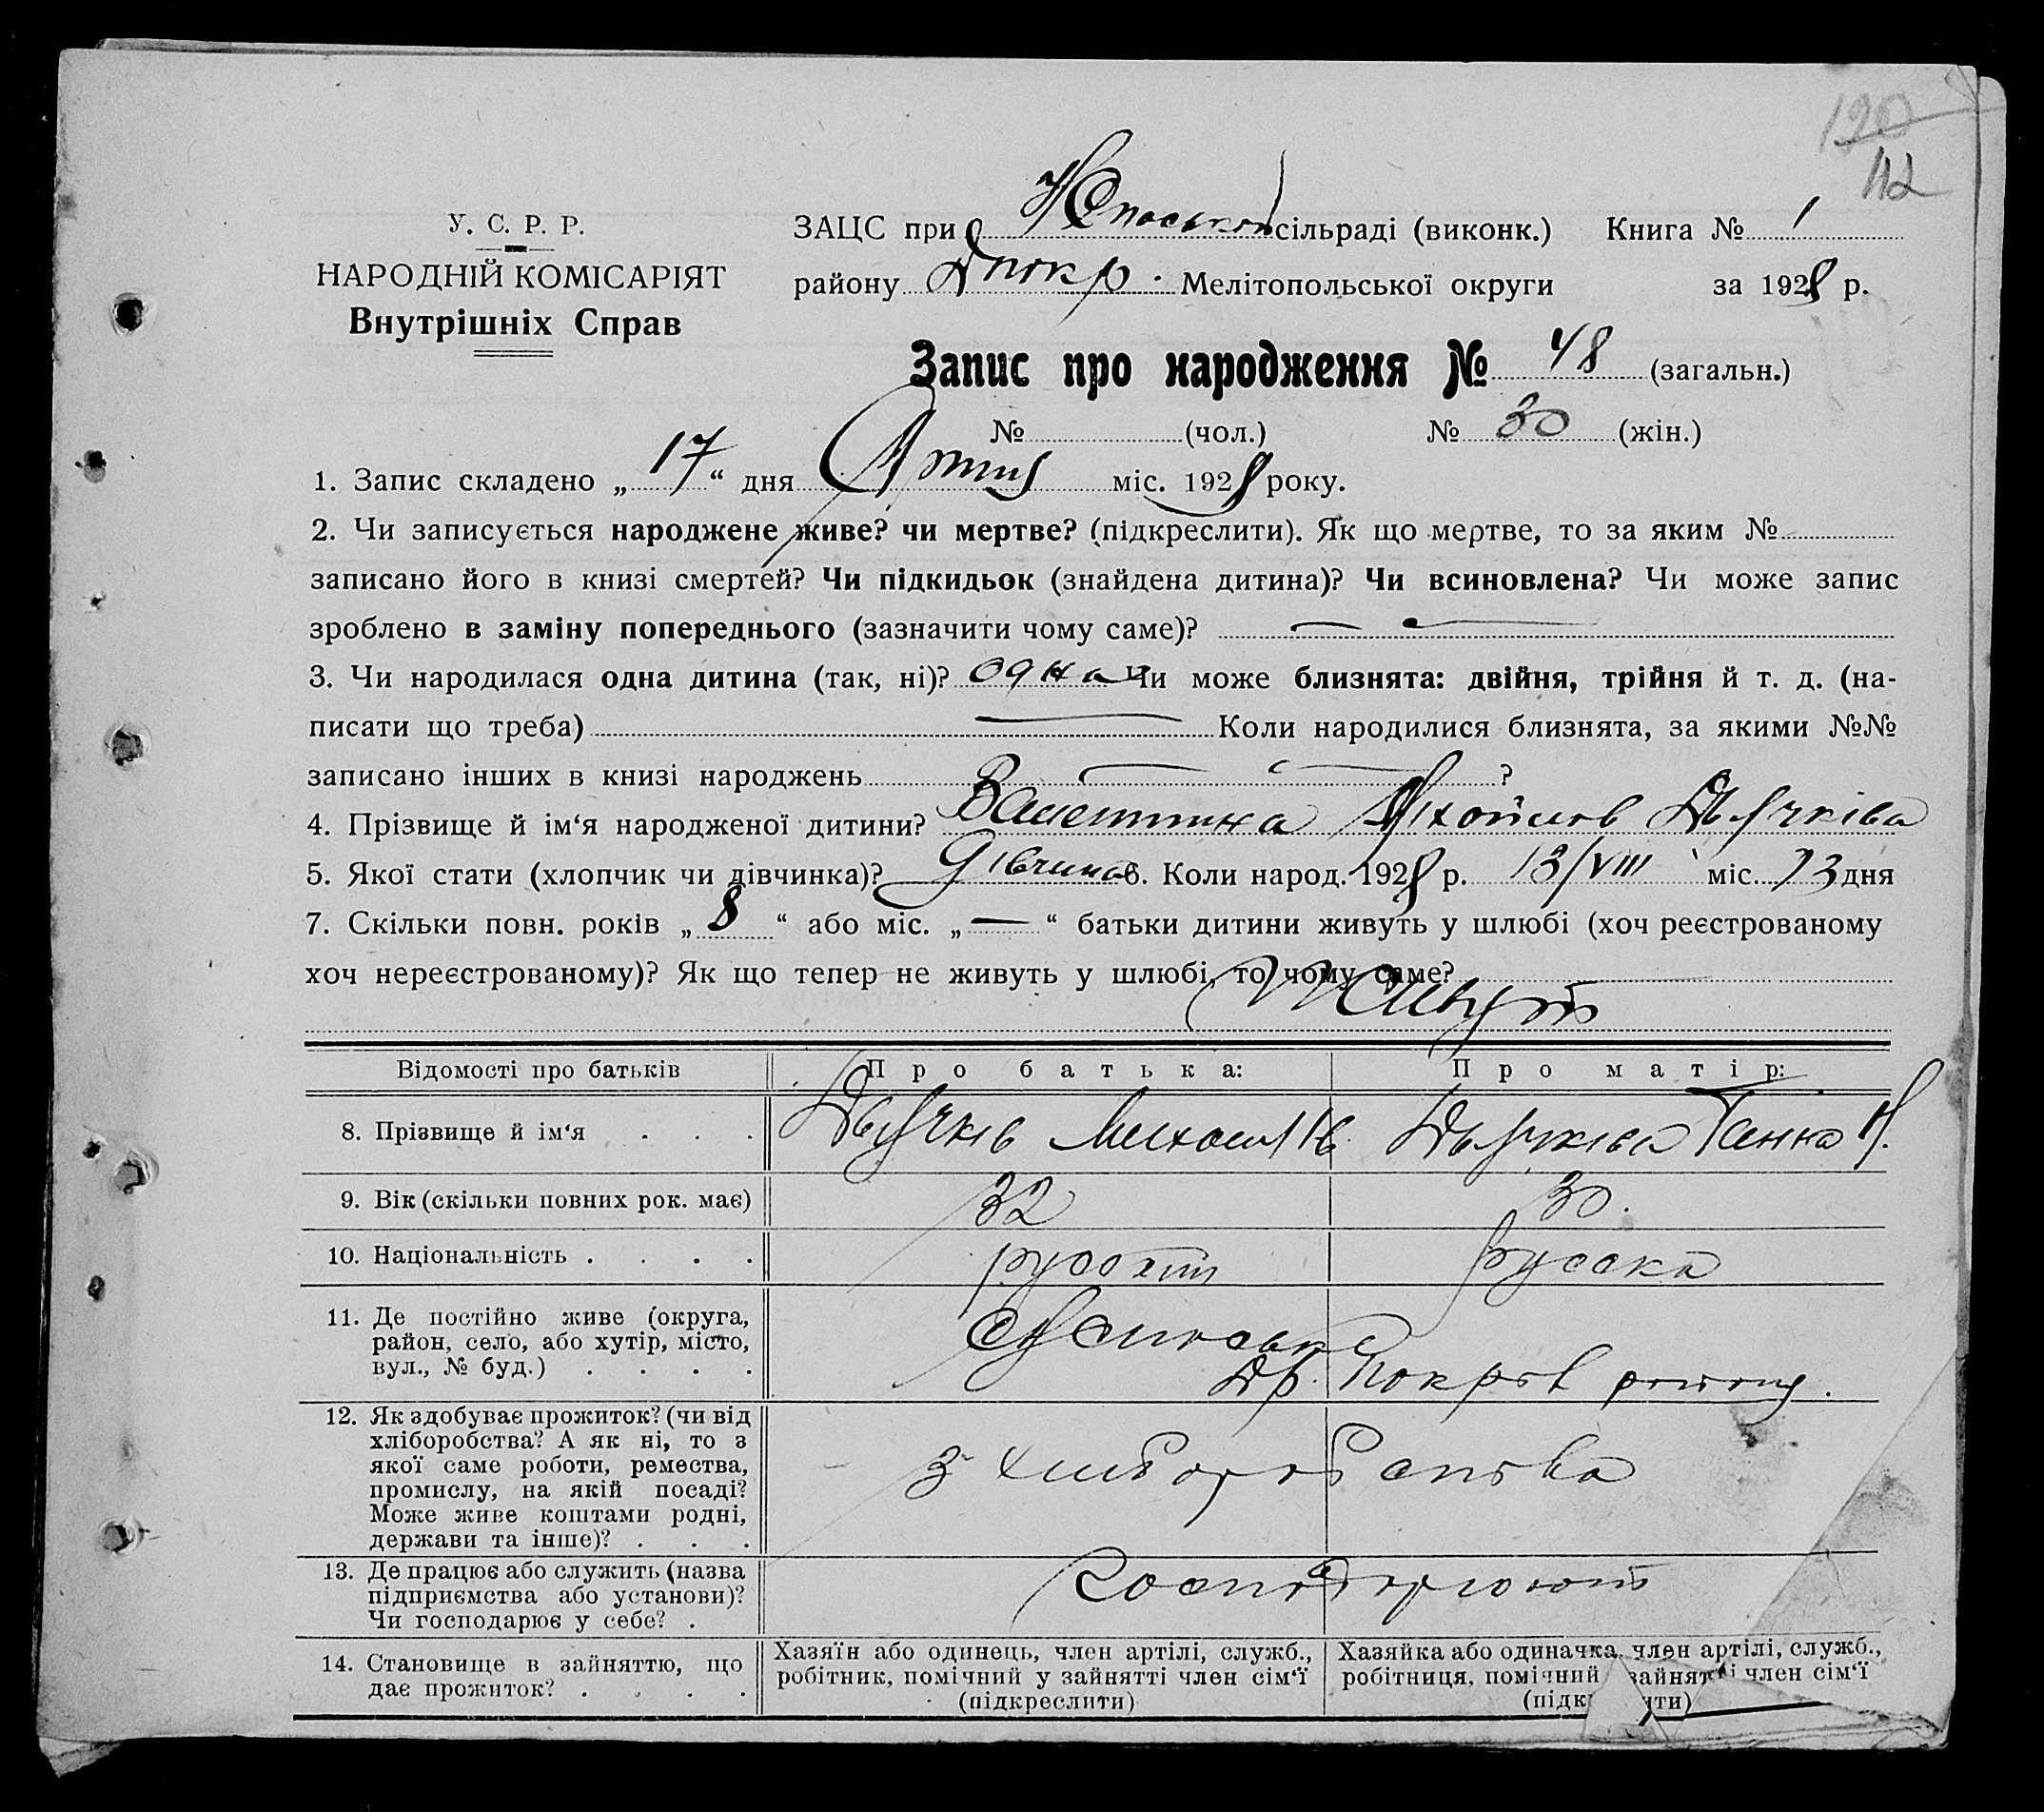 У. С. Р. Р.
НАРОДНІЙ КОМІСАРІЯТ
Внутрішніх Справ
112
ЗАЦС при сільраді (виконк.) Книга № 1
району Мелітопольської округи за 1928 р.
Запис про народження № 48 (загальн.)
№ (чол.) № 30 (жін.)
1. Запис складено „17“ дня міс. 1928 року.
2. Чи записується народжене живе? чи мертве? (підкреслити). Як що мертве, то за яким №
записано його в книзі смертей? Чи підкидьок (знайдена дитина)? Чи всиновлена? Чи може запис
зроблено в заміну попереднього (зазначити чому саме)? —
3. Чи народилася одна дитина (так, ні)? одна Чи може близнята: двійня, трійня й т. д. (на-
писати що треба) — Коли народилися близнята, за якими №№
записано інших в книзі народжень — ?
4. Прізвище й ім‘я народженої дитини? Валентина
5. Якої стати (хлопчик чи дівчинка)? дівчина 6. Коли народ. 1928 р. 13/VIII міс. 13 дня
7. Скільки повн. років „8“ або міс. „—“ батьки дитини живуть у шлюбі (хоч реєстрованому
хоч нереєстрованому)? Як що тепер не живуть у шлюбі, то чому саме?
живуть
Відомості про батьків Про батька: Про матір:
8. Прізвище й ім‘я . . . Ганна
9. Вік (скільки повних рок. має) 32 30.
10. Національність . . . . руський русска
11. Де постійно живе (округа,
район, село, або хутір, місто,
вул., № буд.) . . . . Покров району.
12. Як здобуває прожиток? (чи від
хліборобства? А як ні, то з
якої саме роботи, ремества,
промислу, на якій посаді?
Може живе коштами родні,
держави та інше)? . . .
з хліборобства
13. Де працює або служить (назва
підприємства або установи)?
Чи господарює у себе? .
господарюють
14. Становище в зайняттю, що
дає прожиток? . . . .
Хазяїн або одинець, член артілі, служб.,
робітник, помічний у зайнятті член сім‘ї
(підкреслити)
Хазяйка або одиначка, член артілі, служб.,
робітниця, помічний зайнятті член сім‘ї